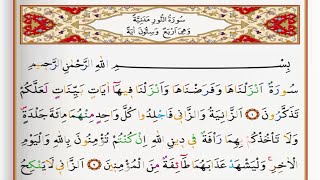 سُورَةُ النُّورِ مَدَنِيَّةٌ
وَهِيَ اَرْبَعٌ وَسِتُّونَ اٰيَةً
بِسْمِ اللهِ الرَّحْمٰنِ الرَّحِيمِ
سُورَةٌ اَنْزَلْنَاهَا وَفَرَضْنَاهَا وَاَنْزَلْنَا فِيهَٓا اٰيَاتٍ بَيِّنَاتٍ لَعَلَّكُمْ
تَذَكَّرُونَ ۝١ اَلزَّانِيَةُ وَالزَّانِي فَاجْلِدُوا كُلَّ وَاحِدٍ مِنْهُمَا مِائَةَ جَلْدَةٍ
وَلَا تَأْخُذْكُمْ بِهِمَا رَأْفَةٌ فِي دِينِ اللهِ اِنْ كُنْتُمْ تُؤْمِنُونَ بِاللهِ وَالْيَوْمِ
الْاٰخِرِ وَلْيَشْهَدْ عَذَابَهُمَا طَٓائِفَةٌ مِنَ الْمُؤْمِنِينَ ۝٢ اَلزَّانِي لَا يَنْكِحُ